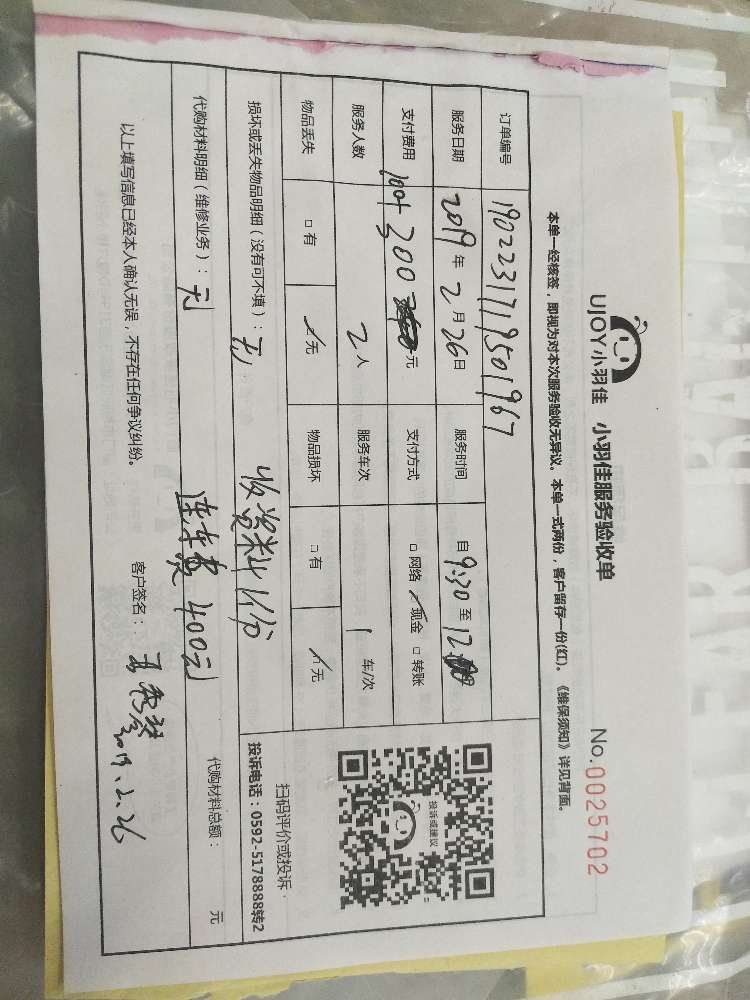 UJOY小羽佳 小羽佳服务验收单
No.0025702
本单一经核签，即视为对本次服务验收无异议。本单一式两份，客户留存一份(红)。《维保须知》详见背面。
订单编号 1902231719501967
服务日期 2019年2月26日 服务时间 自9:30至12
支付费用 100+300元 支付方式 □网络 ☑现金 □转账
服务人数 2人 服务车次 1车/次
物品丢失 □有 ☑无 物品损坏 □有 ☑无
投诉或建议
扫码评价或投诉：
投诉电话：0592-5178888转2
损坏或丢失物品明细（没有可不填）：无 收资料1份
代购材料明细（维修业务）：无 连车费400元 代购材料总额： 元
以上填写信息已经本人确认无误，不存在任何争议纠纷。 客户签名： 2019.2.26